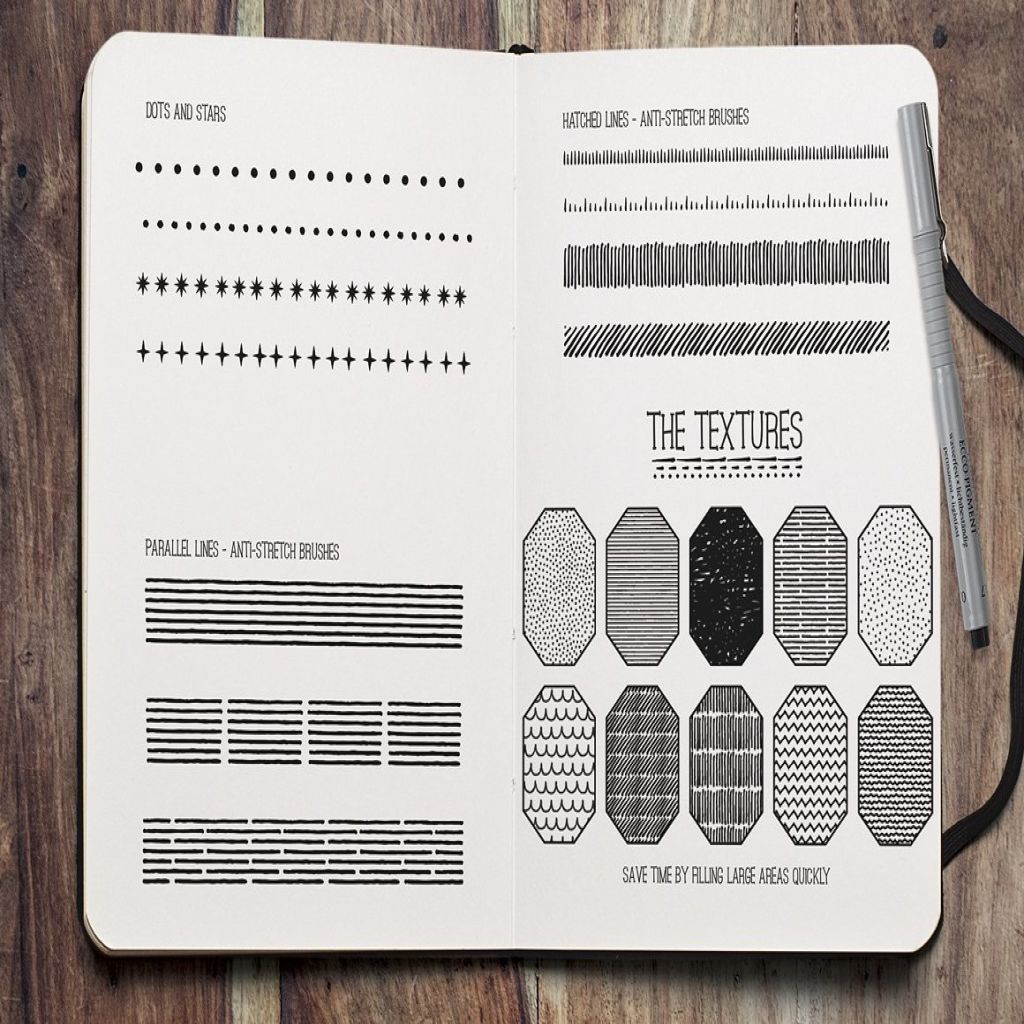 DOTS AND STARS
PARALLEL LINES - ANTI-STRETCH BRUSHES
HATCHED LINES - ANTI-STRETCH BRUSHES
THE TEXTURES
SAVE TIME BY FILLING LARGE AREAS QUICKLY
ECCO PIGMENT
wasserfest • lichtbeständig
permanent • lightfast